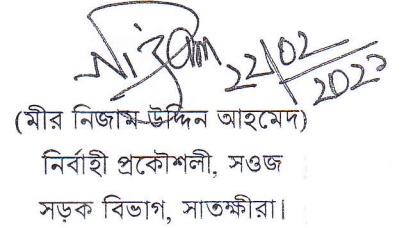 22/02/2023
(মীর নিজাম উদ্দিন আহমেদ)
নির্বাহী প্রকৌশলী, সওজ
সড়ক বিভাগ, সাতক্ষীরা।